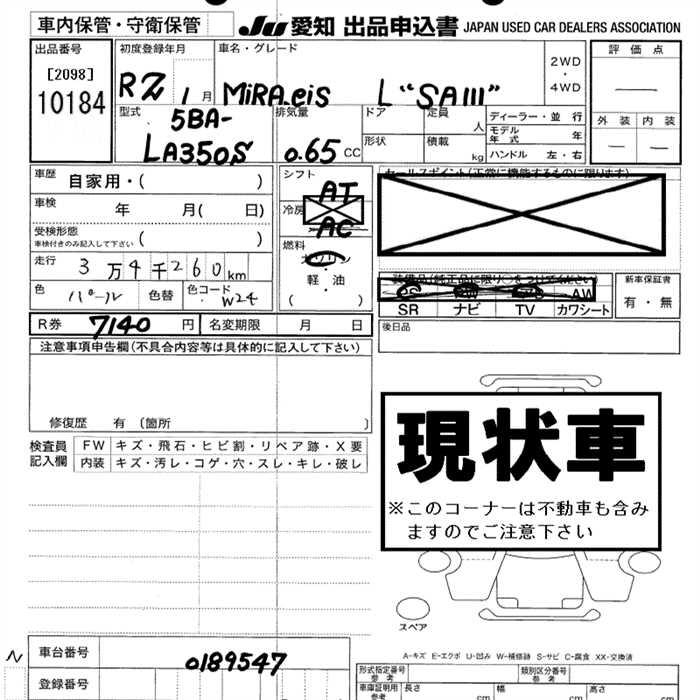 車内保管・守衛保管
JU 愛知 出品申込書 JAPAN USED CAR DEALERS ASSOCIATION
出品番号
[2098]
10184
初度登録年月
R2 1月
車名・グレード
MiRA.eis L "SAIII"
2WD
・
4WD
評価点
外装 内装
型式
5BA-
LA350S
排気量
0.65 CC
ドア
定員
人
形状
積載
kg
ディーラー・並行
モデル年式 年
ハンドル 左・右
車歴 自家用・( )
車検 年 月( 日)
受検形態
車検付きのみ記入して下さい ( )
走行 3万4千260km
色 パール
色替
色コード W24
シフト AT
冷房 AC
燃料
軽・油
( )
セールスポイント(正常に機能するものに限ります)
装備品(純正品に限り○をつけてください)
AW
SR ナビ TV カワシート
新車保証書
有・無
後日品
R券 7140円
名変期限 月 日
注意事項申告欄(不具合内容等は具体的に記入して下さい)
修復歴 有 (箇所 )
検査員
記入欄
FW キズ・飛石・ヒビ割・リペア跡・X要
内装 キズ・汚レ・コゲ・穴・スレ・キレ・破レ
現状車
※このコーナーは不動車も含み
ますのでご注意下さい
スペア
A-キズ E-エクボ U-凹み W-補修跡 S-サビ C-腐食 XX-交換済
N
車台番号 0189547
登録番号
形式指定番号
参考
類別区分番号
参考
車庫証明用
参考
長さ cm
幅 cm
高さ cm